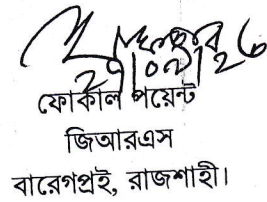 ফোকাল পয়েন্ট
জিআরএস
বারেগপ্রই, রাজশাহী।